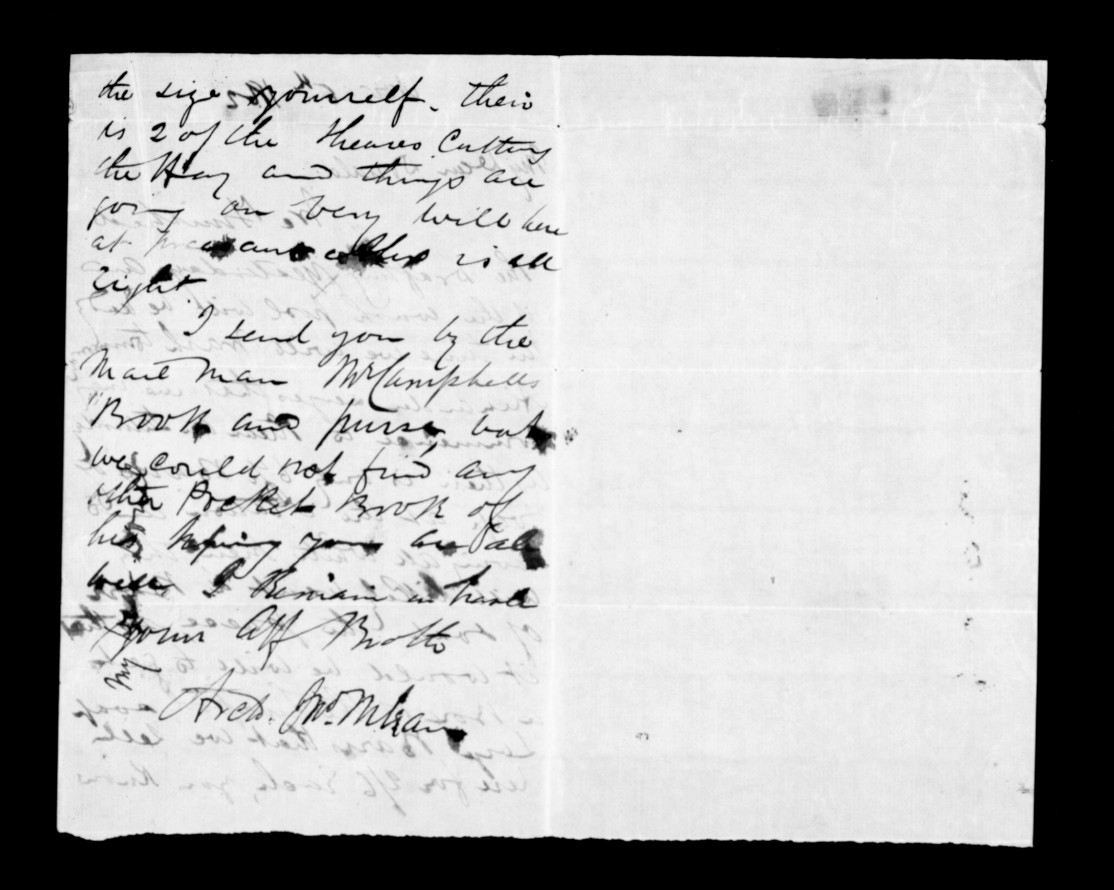 the size yourself. their
is 2 of the Sheares Cutting
the Hay and things are
going on very will here
at and is all
right
I send you by the
Mail man Mr Campbells
"Book and purse, but
we could not find any
other Pocket Book of
his hoping you are all
well I Remain in haste
your Aff Broth
My
Archd. Jno. McLean